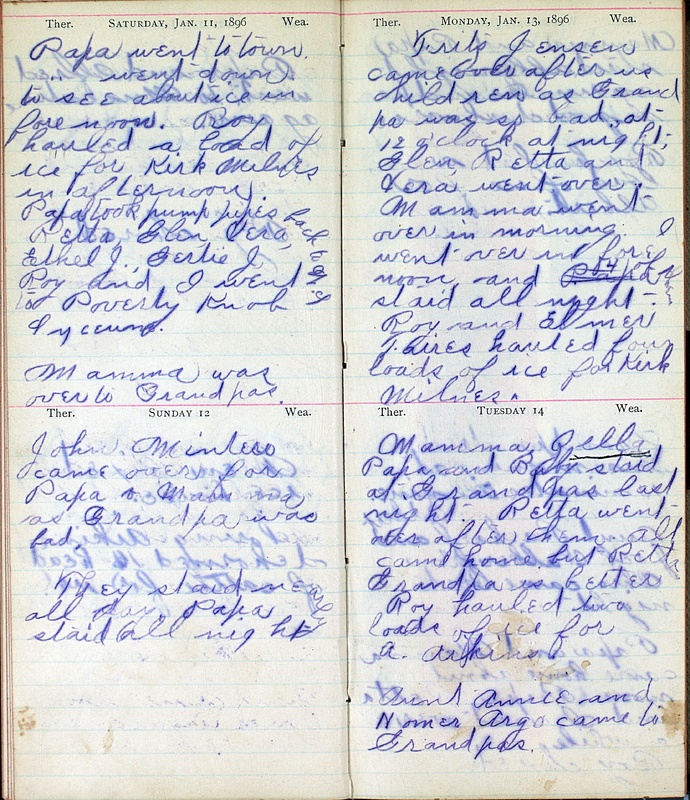 Ther. SATURDAY, JAN. 11, 1896 Wea.
Papa went to town.
" went down
to see about ice in
fore noon. Roy
hauled a load of
ice for Kirk Milnes
in afternoon.
Papa took pump pipes back
Retta, Glen, Vera,
Ethel J., Gertie J.
Roy and I went
to Poverty Knob
Lyceum.
Mamma was
over to Grandpas.
Ther. SUNDAY 12 Wea.
John Minteer
came over for
Papa & Mamma
as Grandpa was
bad.
They staid nearly
all day Papa
staid all night
Ther. MONDAY, JAN. 13, 1896 Wea.
Frits Jensen
came over after us
children as Grand
pa was so bad, at
12 o'clock at night,
Glen, Retta and
Vera went over.
Mamma went
over in morning. I
went over in fore
noon and
staid all night -
Roy and Elmer
hauled four
loads of ice for Kirk
Milnes.
Ther. TUESDAY 14 Wea.
Mamma,
Papa and staid
at Grandpas last
night - Retta went
over after them all
came home but Retta
Grandpa is better
Roy hauled two
loads of ice for
A. Atkins
Aunt Annie and
Homer Argo came to
Grandpas.